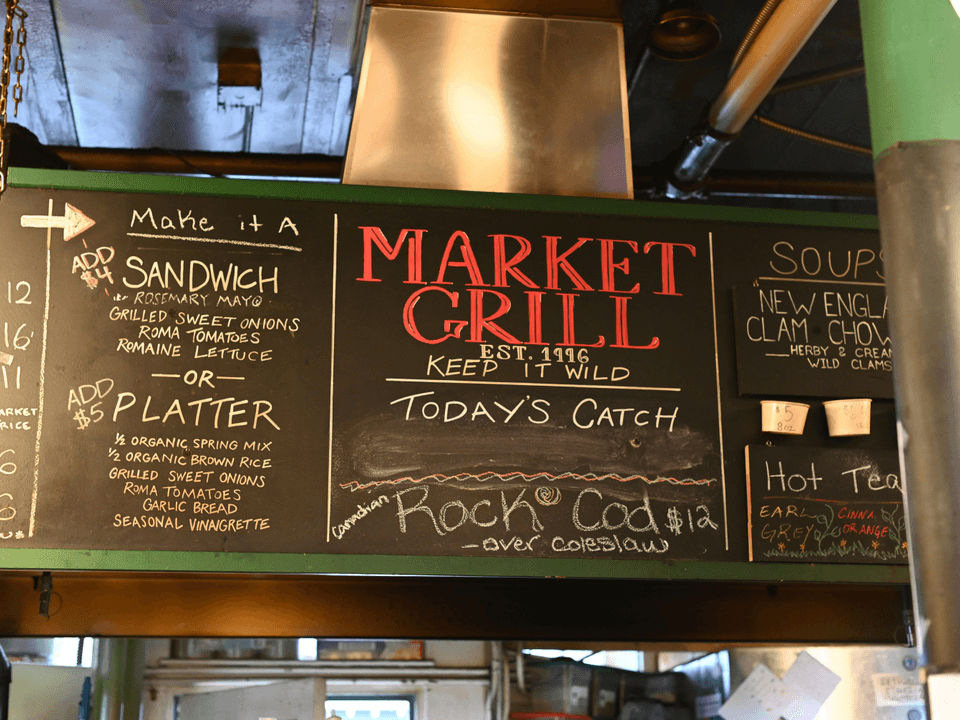 12
16
11
MARKET
PRICE
6
6
Make it A
ADD
$4
SANDWICH
ROSEMARY MAYO
GRILLED SWEET ONIONS
ROMA TOMATOES
ROMAINE LETTUCE
—OR—
ADD
$5
PLATTER
½ ORGANIC SPRING MIX
½ ORGANIC BROWN RICE
GRILLED SWEET ONIONS
ROMA TOMATOES
GARLIC BREAD
SEASONAL VINAIGRETTE
MARKET
GRILL
EST. 1996
KEEP IT WILD
TODAY'S CATCH
Canadian Rock Cod $12
- over coleslaw
SOUPS
NEW ENGLA
CLAM CHOW
HERBY & CREAM
WILD CLAMS
$5
8oz
Hot Tea
EARL GREY
CINNA. ORANGE